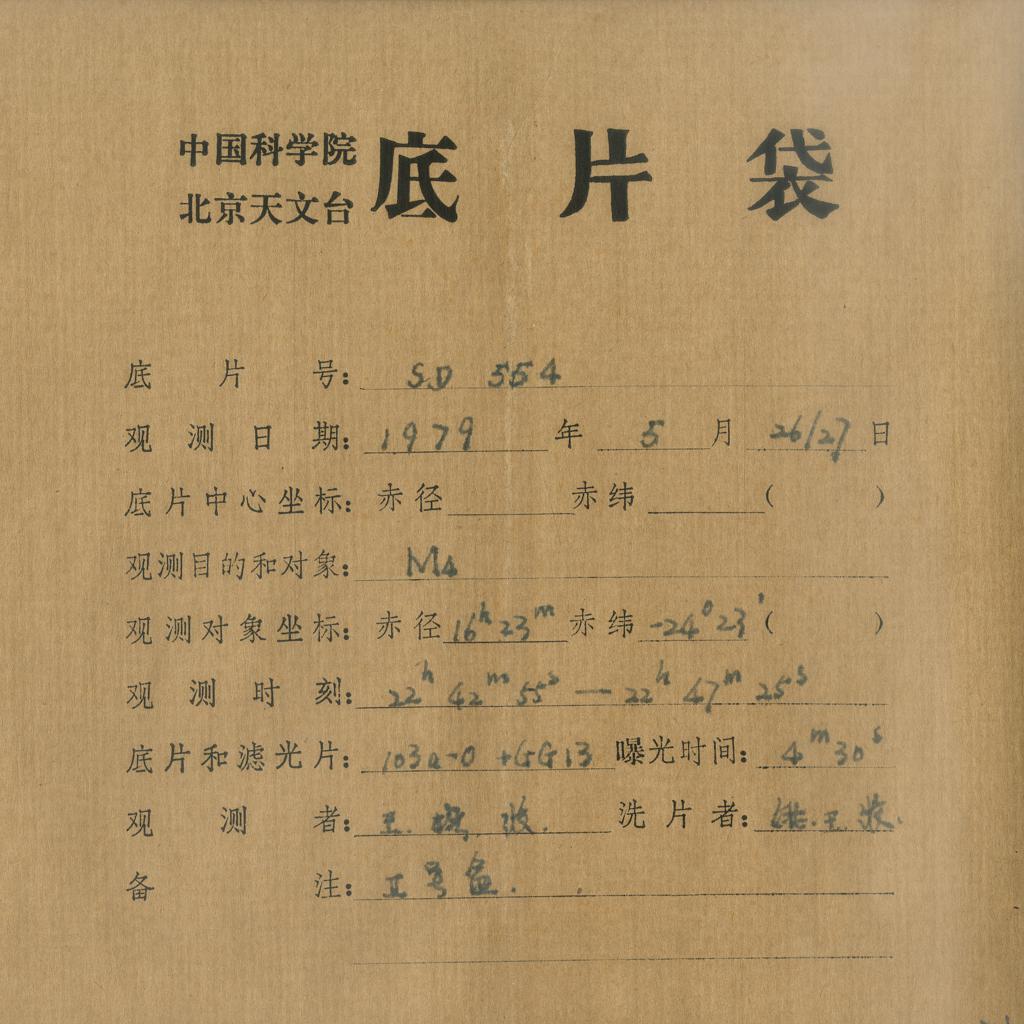 中国科学院
北京天文台
底片袋
底片号: SD 554
观测日期: 1979 年 5 月 26/27 日
底片中心坐标: 赤径 赤纬 ( )
观测目的和对象: M4
观测对象坐标: 赤径 16h 23m 赤纬 -24° 23' ( )
观测时刻: 22h 42m 55s — 22h 47m 25s
底片和滤光片: 103a-O +GG13 曝光时间: 4m 30s
观测者: 王. 洗片者: 王
备注: II号盒.